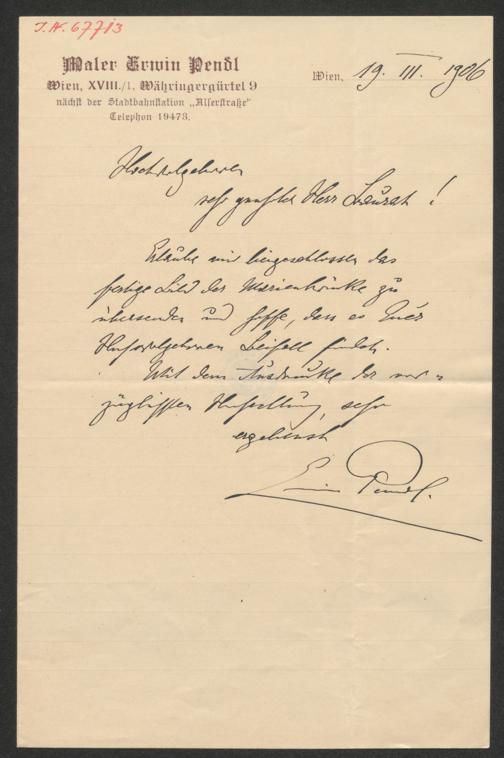 I. N. 67713
Maler Erwin Pendl
Wien, XVIII./1, Währingergürtel 9
nächst der Stadtbahnstation „Alserstraße"
Telephon 19473.
Wien, 19. III. 1906
Hochwolgeboren
sehr geehrter Herr Baurat!
Erlaube mir beigeschlossen das
fertige Bild der Marienbrücke zu
übersenden und hoffe, dass es Euer
Hochwolgeboren Beifall findet.
Mit dem Ausdrucke der vor-
züglichsten Hochachtung, sehr
ergebenst
Erwin Pendl.